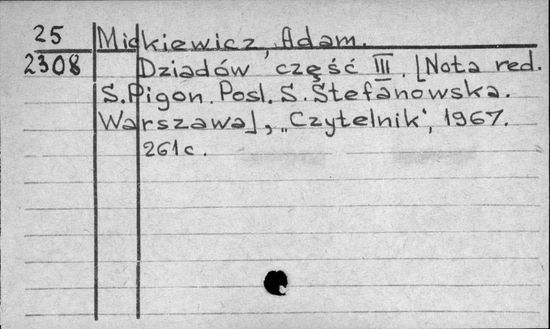 25 Mickiewicz, Adam.
2308 Dziadów część III. [Nota red.
S. Pigoń. Posl. S. Stefanowska.
Warszawa], „Czytelnik", 1967.
261 c.